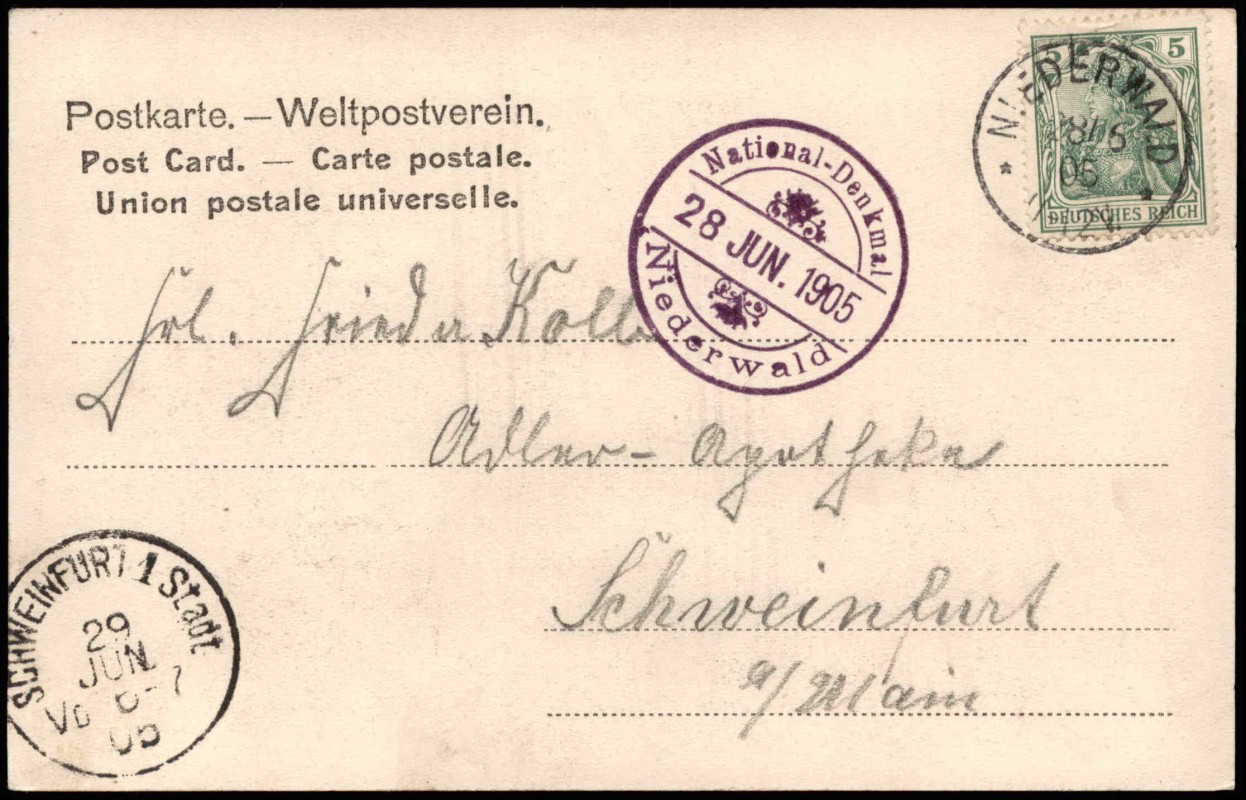 Postkarte. — Weltpostverein.
Post Card. — Carte postale.
Union postale universelle.
National-Denkmal
28 JUN. 1905
Niederwald
NIEDERWALD
28/6
05
5 5
DEUTSCHES REICH
Frl. Frieda
Adler-Apotheke
Schweinfurt
a/Main
SCHWEINFURT 1 Stadt
29
JUN.
05